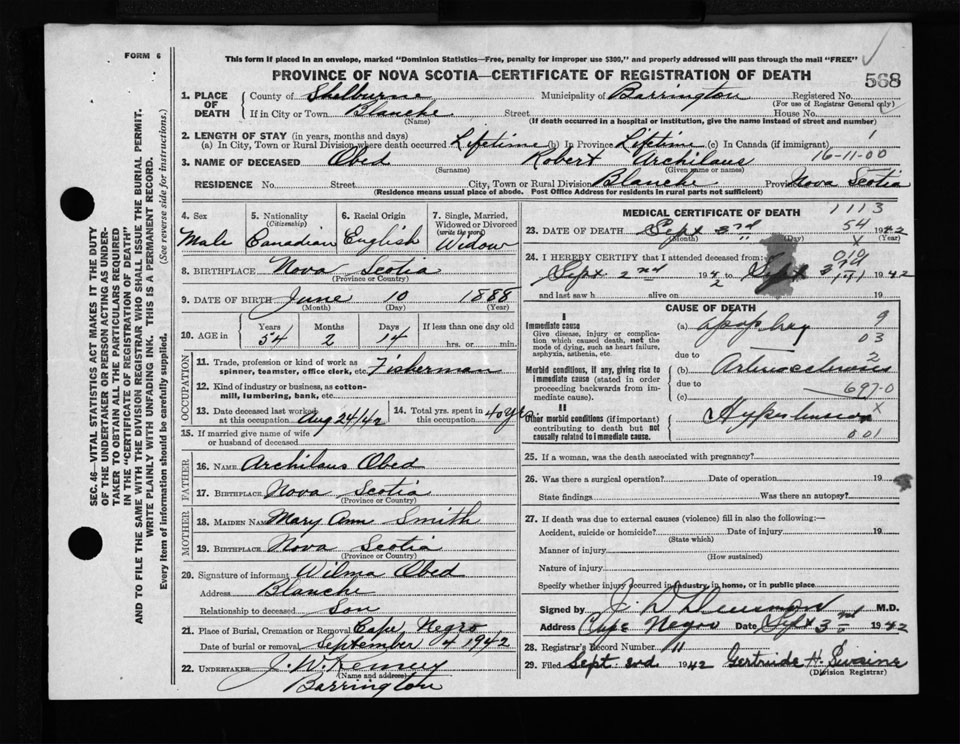 FORM 6
This form if placed in an envelope, marked "Dominion Statistics—Free, penalty for improper use $300," and properly addressed will pass through the mail "FREE"
PROVINCE OF NOVA SCOTIA—CERTIFICATE OF REGISTRATION OF DEATH
568
1. PLACE OF DEATH
County of Shelburne Municipality of Barrington Registered No.
(For use of Registrar General only)
If in City or Town Blanche Street House No.
(Name) (If death occurred in a hospital or institution, give the name instead of street and number)
2. LENGTH OF STAY (in years, months and days)
(a) In City, Town or Rural Division where death occurred Lifetime (b) In Province Lifetime (c) In Canada (if immigrant)
16-11-00
3. NAME OF DECEASED Obed Robert Archilaus
(Surname) (Given name or names)
RESIDENCE No. Street City, Town or Rural Division Blanche Province Nova Scotia
(Residence means usual place of abode. Post Office Address for residents in rural parts not sufficient)
4. Sex Male
5. Nationality (Citizenship) Canadian
6. Racial Origin English
7. Single, Married, Widowed or Divorced (write the word) Widow
8. BIRTHPLACE Nova Scotia
(Province or Country)
9. DATE OF BIRTH June 10 1888
(Month) (Day) (Year)
10. AGE in Years Months Days If less than one day old
54 2 14 hrs. or min.
OCCUPATION
11. Trade, profession or kind of work as spinner, teamster, office clerk, etc. Fisherman
12. Kind of industry or business, as cotton-mill, lumbering, bank, etc.
13. Date deceased last worked at this occupation Aug 24/42
14. Total yrs. spent in this occupation 40 yr
15. If married give name of wife or husband of deceased
FATHER
16. NAME Archilaus Obed
17. BIRTHPLACE Nova Scotia
(Province or Country)
MOTHER
18. MAIDEN NAME Mary Ann Smith
19. BIRTHPLACE Nova Scotia
(Province or Country)
20. Signature of informant Wilma Obed
Address Blanche
Relationship to deceased Son
21. Place of Burial, Cremation or Removal Cape Negro
Date of burial or removal September 4 1942
22. UNDERTAKER J. W. Kenney
(Name and address)
Barrington
MEDICAL CERTIFICATE OF DEATH
1113
23. DATE OF DEATH Sept 3rd 1942
(Month) (Day) (Year)
54
24. I HEREBY CERTIFY that I attended deceased from:
Sept 2nd 1942 to Sept 3rd 1942
and last saw h alive on 19
CAUSE OF DEATH
I
Immediate cause
Give disease, injury or complication which caused death, not the mode of dying, such as heart failure, asphyxia, asthenia, etc.
(a) apoplexy
9
03
due to
2
Morbid conditions, if any, giving rise to immediate cause (stated in order proceeding backwards from immediate cause).
(b)
due to
697-0
(c)
II
Other morbid conditions (if important) contributing to death but not causally related to immediate cause.
Hypertension
x
001
25. If a woman, was the death associated with pregnancy?
26. Was there a surgical operation? Date of operation 19
State findings Was there an autopsy?
27. If death was due to external causes (violence) fill in also the following:—
Accident, suicide or homicide? Date of injury 19
(State which)
Manner of injury
(How sustained)
Nature of injury
Specify whether injury occurred in industry, in home, or in public place
Signed by M.D.
Address Cape Negro Date Sept 3rd 1942
28. Registrar's Record Number 11
29. Filed Sept. 3rd 1942 Gertrude H. Swaine
(Division Registrar)
SEC. 46—VITAL STATISTICS ACT MAKES IT THE DUTY
OF THE UNDERTAKER OR PERSON ACTING AS UNDER-
TAKER TO OBTAIN ALL THE PARTICULARS REQUIRED
IN THE "CERTIFICATE OF REGISTRATION OF DEATH"
AND TO FILE THE SAME WITH THE DIVISION REGISTRAR WHO SHALL ISSUE THE BURIAL PERMIT.
WRITE PLAINLY WITH UNFADING INK. THIS IS A PERMANENT RECORD.
Every item of information should be carefully supplied. (See reverse side for instructions.)